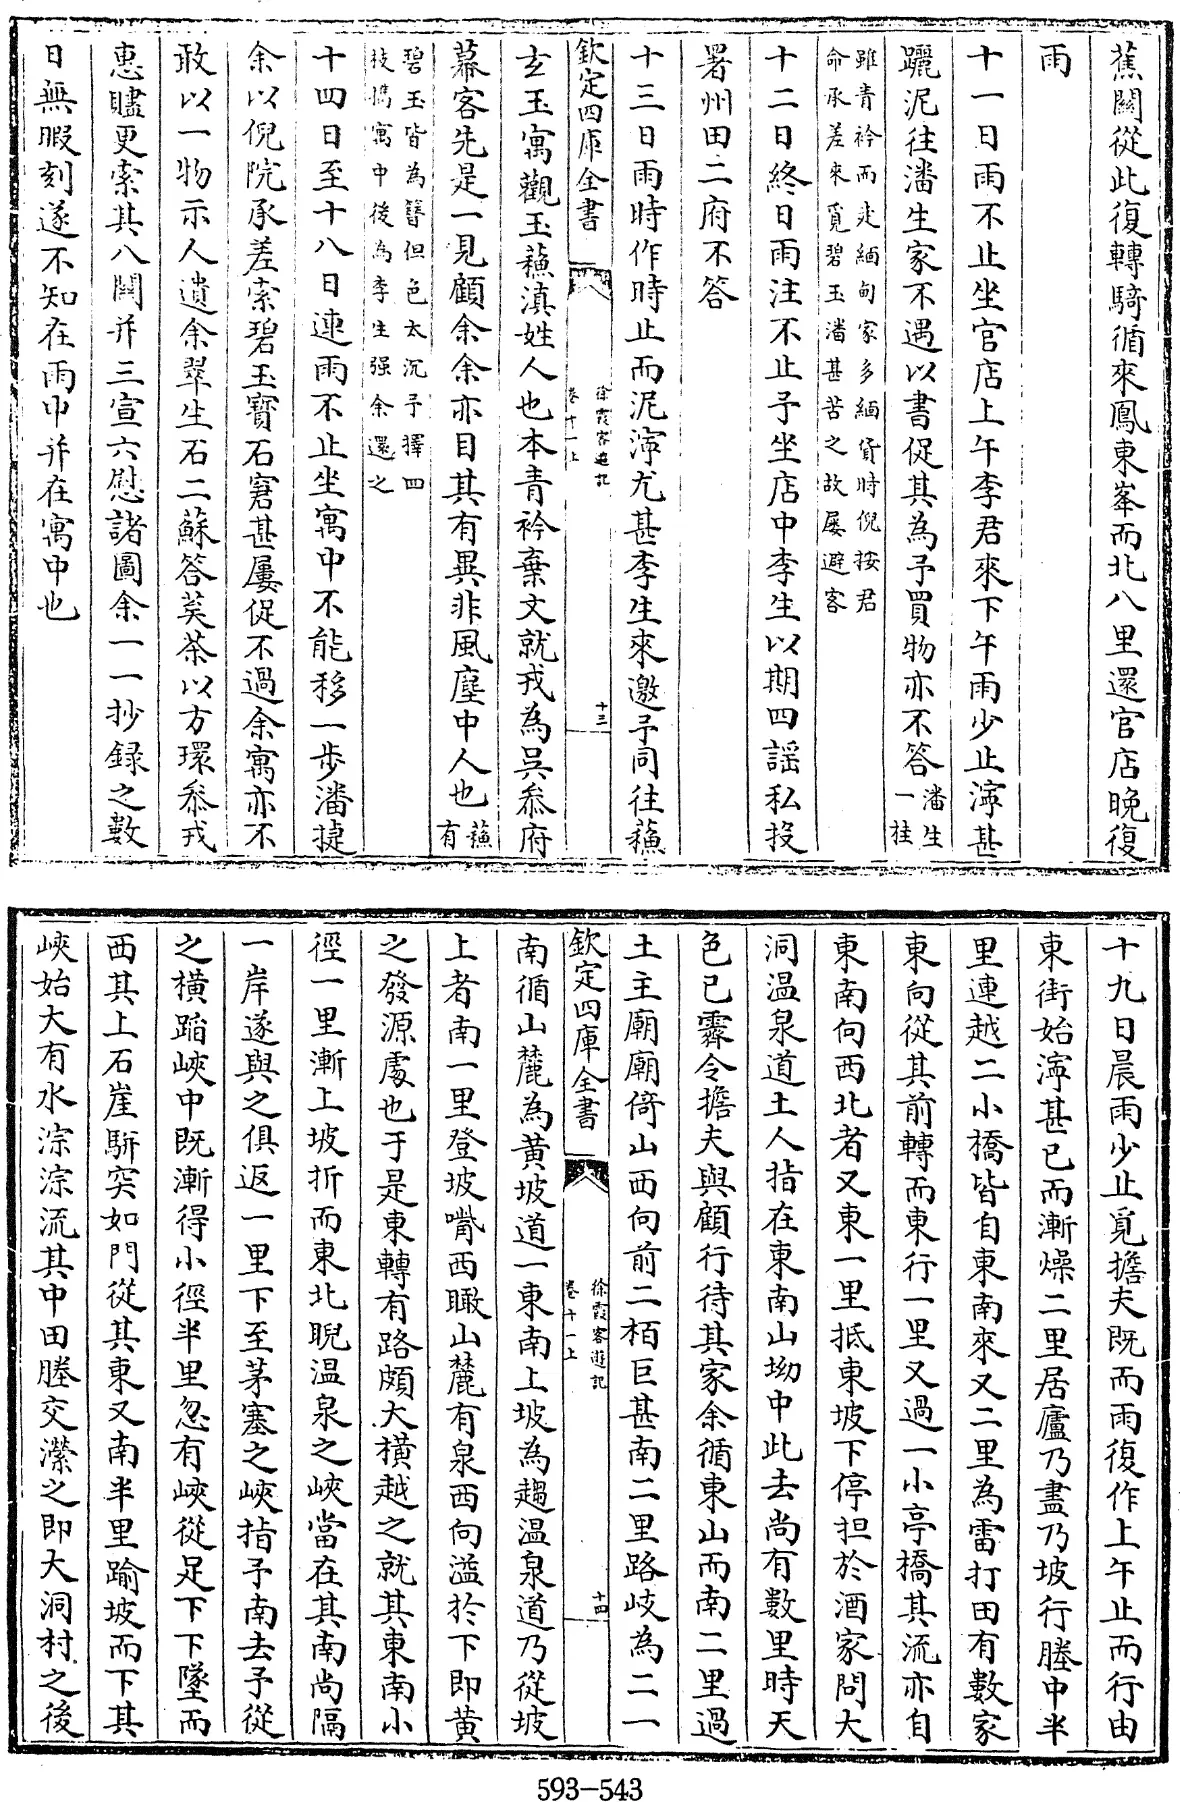 蕉關從此復轉騎循來鳳東峯而北八里還官店晚復
雨
十一日雨不止坐官店上午李君來下午雨少止濘甚
躧泥往潘生家不遇以書促其為予買物亦不答潘生
一桂
雖青衿而走緬甸家多緬貨時倪按君
命承差來覓碧玉潘甚苦之故屢避客
十二日終日雨注不止予坐店中李生以期四謡私投
署州田二府不答
十三日雨時作時止而泥濘尤甚李生來邀予同往蘓
欽定四庫全書
徐霞客遊記
卷十一上
十三
玄玉寓觀玉蘓滇姓人也本青衿棄文就戎為吳叅府
幕客先是一見顧余余亦目其有異非風塵中人也蘓
有
碧玉皆為簪但色太沉予擇四
枝攜寓中後為李生强余還之
十四日至十八日連雨不止坐寓中不能移一步潘捷
余以倪院承差索碧玉寳石窘甚屢促不過余寓亦不
敢以一物示人遺余翠生石二蘇答英茶以方環叅戎
惠贐更索其八關并三宣六慰諸圖余一一抄録之數
日無暇刻遂不知在雨中并在寓中也
十九日晨雨少止覓擔夫既而雨復作上午止而行由
東街始濘甚已而漸燥二里居廬乃盡乃坡行塍中半
里連越二小橋皆自東南來又二里為雷打田有數家
東向從其前轉而東行一里又過一小亭橋其流亦自
東南向西北者又東一里抵東坡下停担於酒家問大
洞温泉道土人指在東南山坳中此去尚有數里時天
色已霽令擔夫與顧行待其家余循東山而南二里過
土主廟廟倚山西向前二栢巨甚南二里路岐為二一
欽定四庫全書
徐霞客遊記
卷十一上
十四
南循山麓為黄坡道一東南上坡為趨温泉道乃從坡
上者南一里登坡嘴西瞰山麓有泉西向溢於下即黄
之發源處也于是東轉有路頗大横越之就其東南小
徑一里漸上坡折而東北睨温泉之峽當在其南尚隔
一岸遂與之俱返一里下至茅塞之峽指予南去予從
之横蹈峽中既漸得小徑半里忽有峽從足下下墜而
西其上石崖騈突如門從其東又南半里踰坡而下其
峽始大有水淙淙流其中田塍交瀠之即大洞村之後
593-543